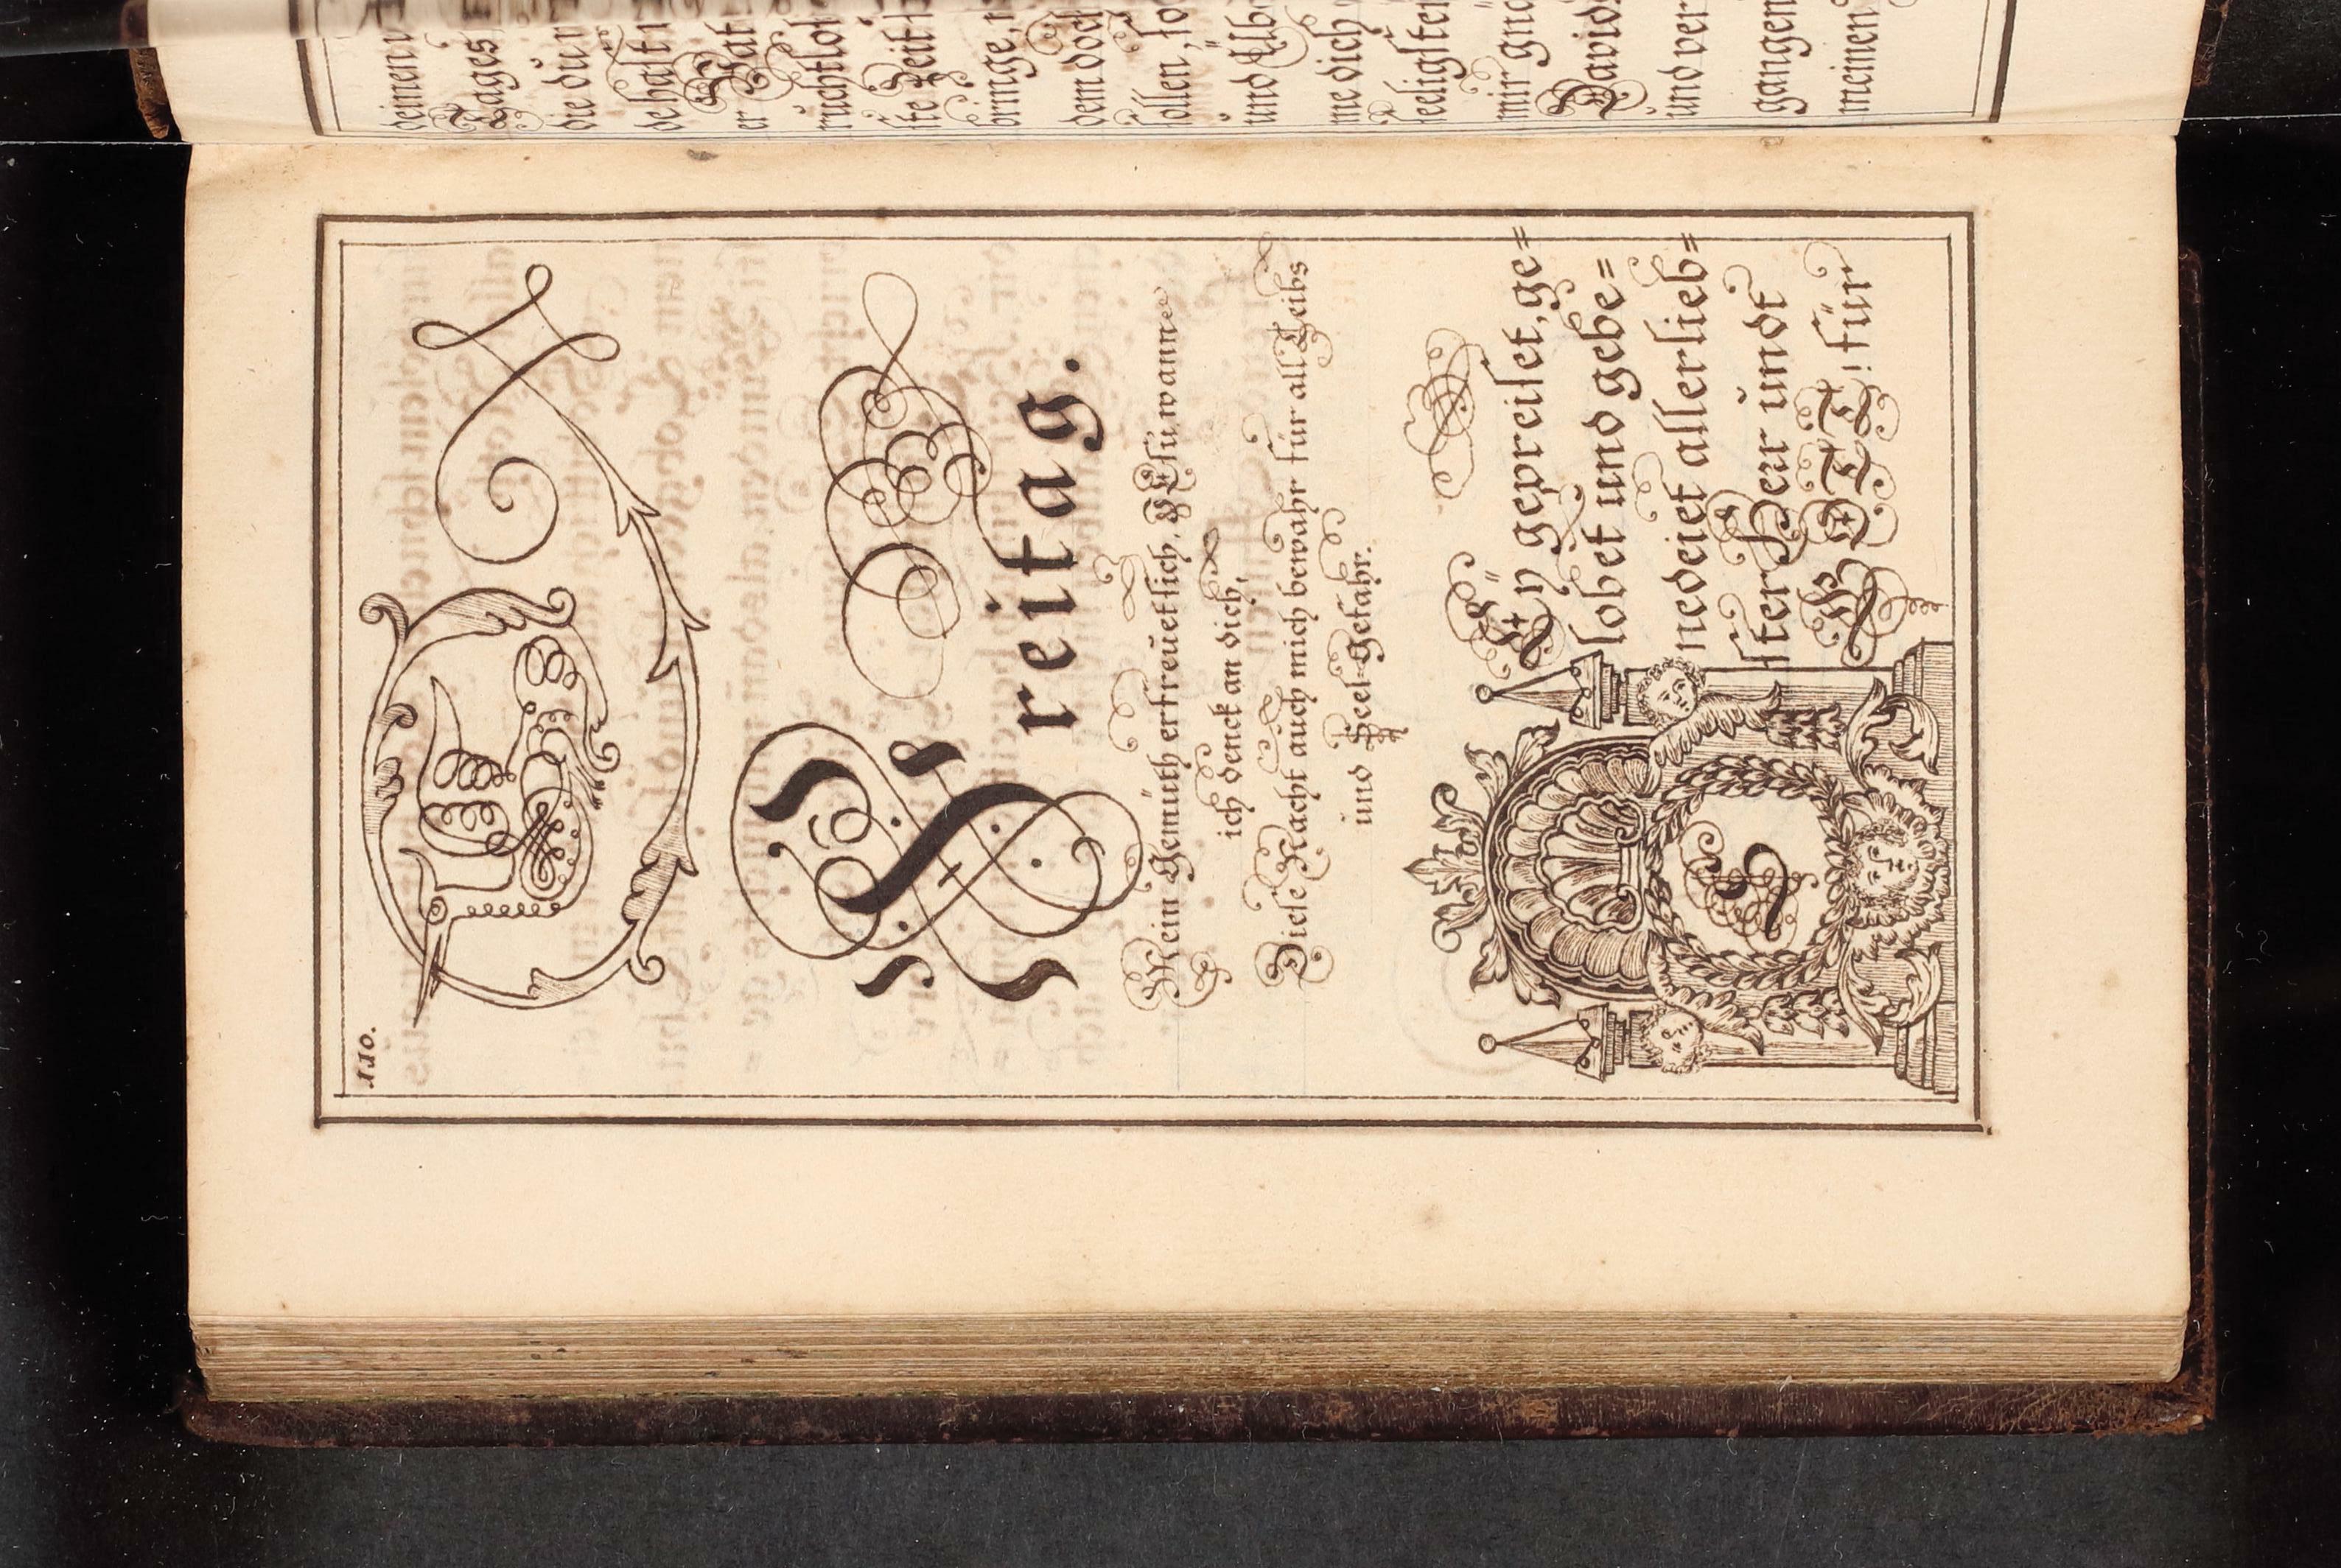 110.
Freitag.
Mein Gemüth erfreüet sich, JEsu wann
ich denck an dich,
Diese Nacht auch mich bewahr für all Leibs
und Seel=Gefahr.
SEÿ gepreiset, ge=
lobet und gebe=
nedeiet allerlieb=
ster Herr undt
GOTT! für
deinen
Tages
die
de hast
er
ste Zeit
bringe,
dem doch
sollen, so
und
me dich
seeligster
mir
David
und ver
gangen
meinen